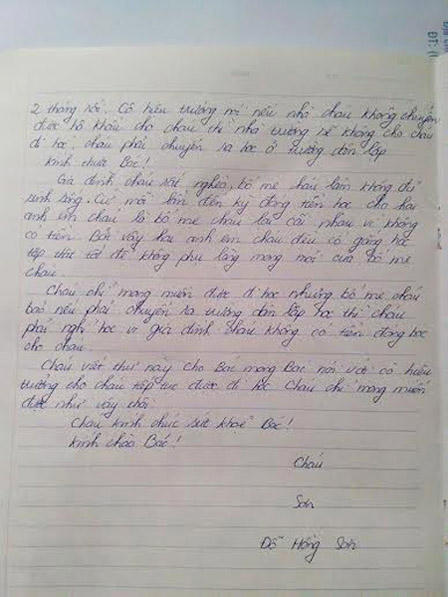 2 tháng rồi. Cô hiệu trưởng nói nếu nhà cháu không chuyển
được hộ khẩu cho cháu thì nhà trường sẽ không cho cháu
đi học, cháu phải chuyển ra học ở trường dân lập
Kính thưa Bác!
Gia đình cháu rất nghèo, bố mẹ cháu làm không đủ
sinh sống. Cứ mỗi lần đến kỳ đóng tiền học cho hai
anh em cháu là bố mẹ cháu lại cãi nhau vì không
có tiền. Bởi vậy hai anh em cháu đều cố gắng học
tập thật tốt để không phụ lòng mong mỏi của bố mẹ
cháu.
Cháu chỉ mong muốn được đi học nhưng bố mẹ cháu
bảo nếu phải chuyển ra trường dân lập học thì cháu
phải nghỉ học vì gia đình cháu không có tiền đóng học
cho cháu.
Cháu viết thư này cho Bác mong Bác nói với cô hiệu
trưởng cho cháu tiếp tục được đi học. Cháu chỉ mong muốn
được như vậy thôi.
Cháu kính chúc sức khoẻ Bác!
Kính chào Bác!
Cháu
Sơn
Đỗ Hồng Sơn
ĐT: